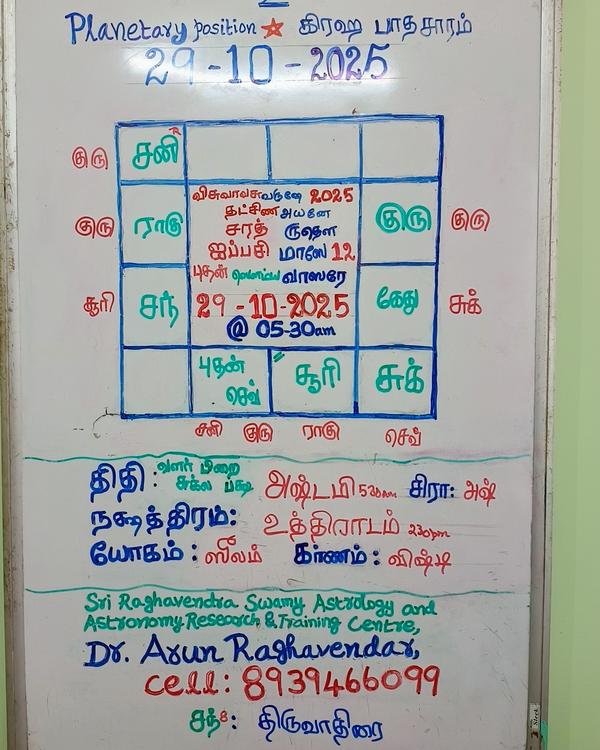 Planetary position ☆ கிரஹ பாதசாரம்
29-10-2025
குரு சனி R
விசுவாவசுவருஷே 2025
தட்சிண அயனே
குரு ராகு குரு குரு
சரத் ருதௌ
ஐப்பசி மாஸே 12
புதன் வாஸரே
சூரி சந் 29-10-2025 கேது சுக்
@ 05-30am
புதன் செவ் சூரி சுக்
சனி குரு ராகு செவ்
திதி: வளர் பிறை சுக்ல பக்ஷ அஷ்டமி 5 30am சிரா: அஷ்
நக்ஷத்திரம்: உத்திராடம் 2.30pm
யோகம்: ஸூலம் கர்ணம்: விஷ்டி
Sri Raghavendra Swamy Astrology and
Astronomy Research & Training Centre,
Dr. Arun Raghavendar,
cell: 8939466099
சந் 8: திருவாதிரை